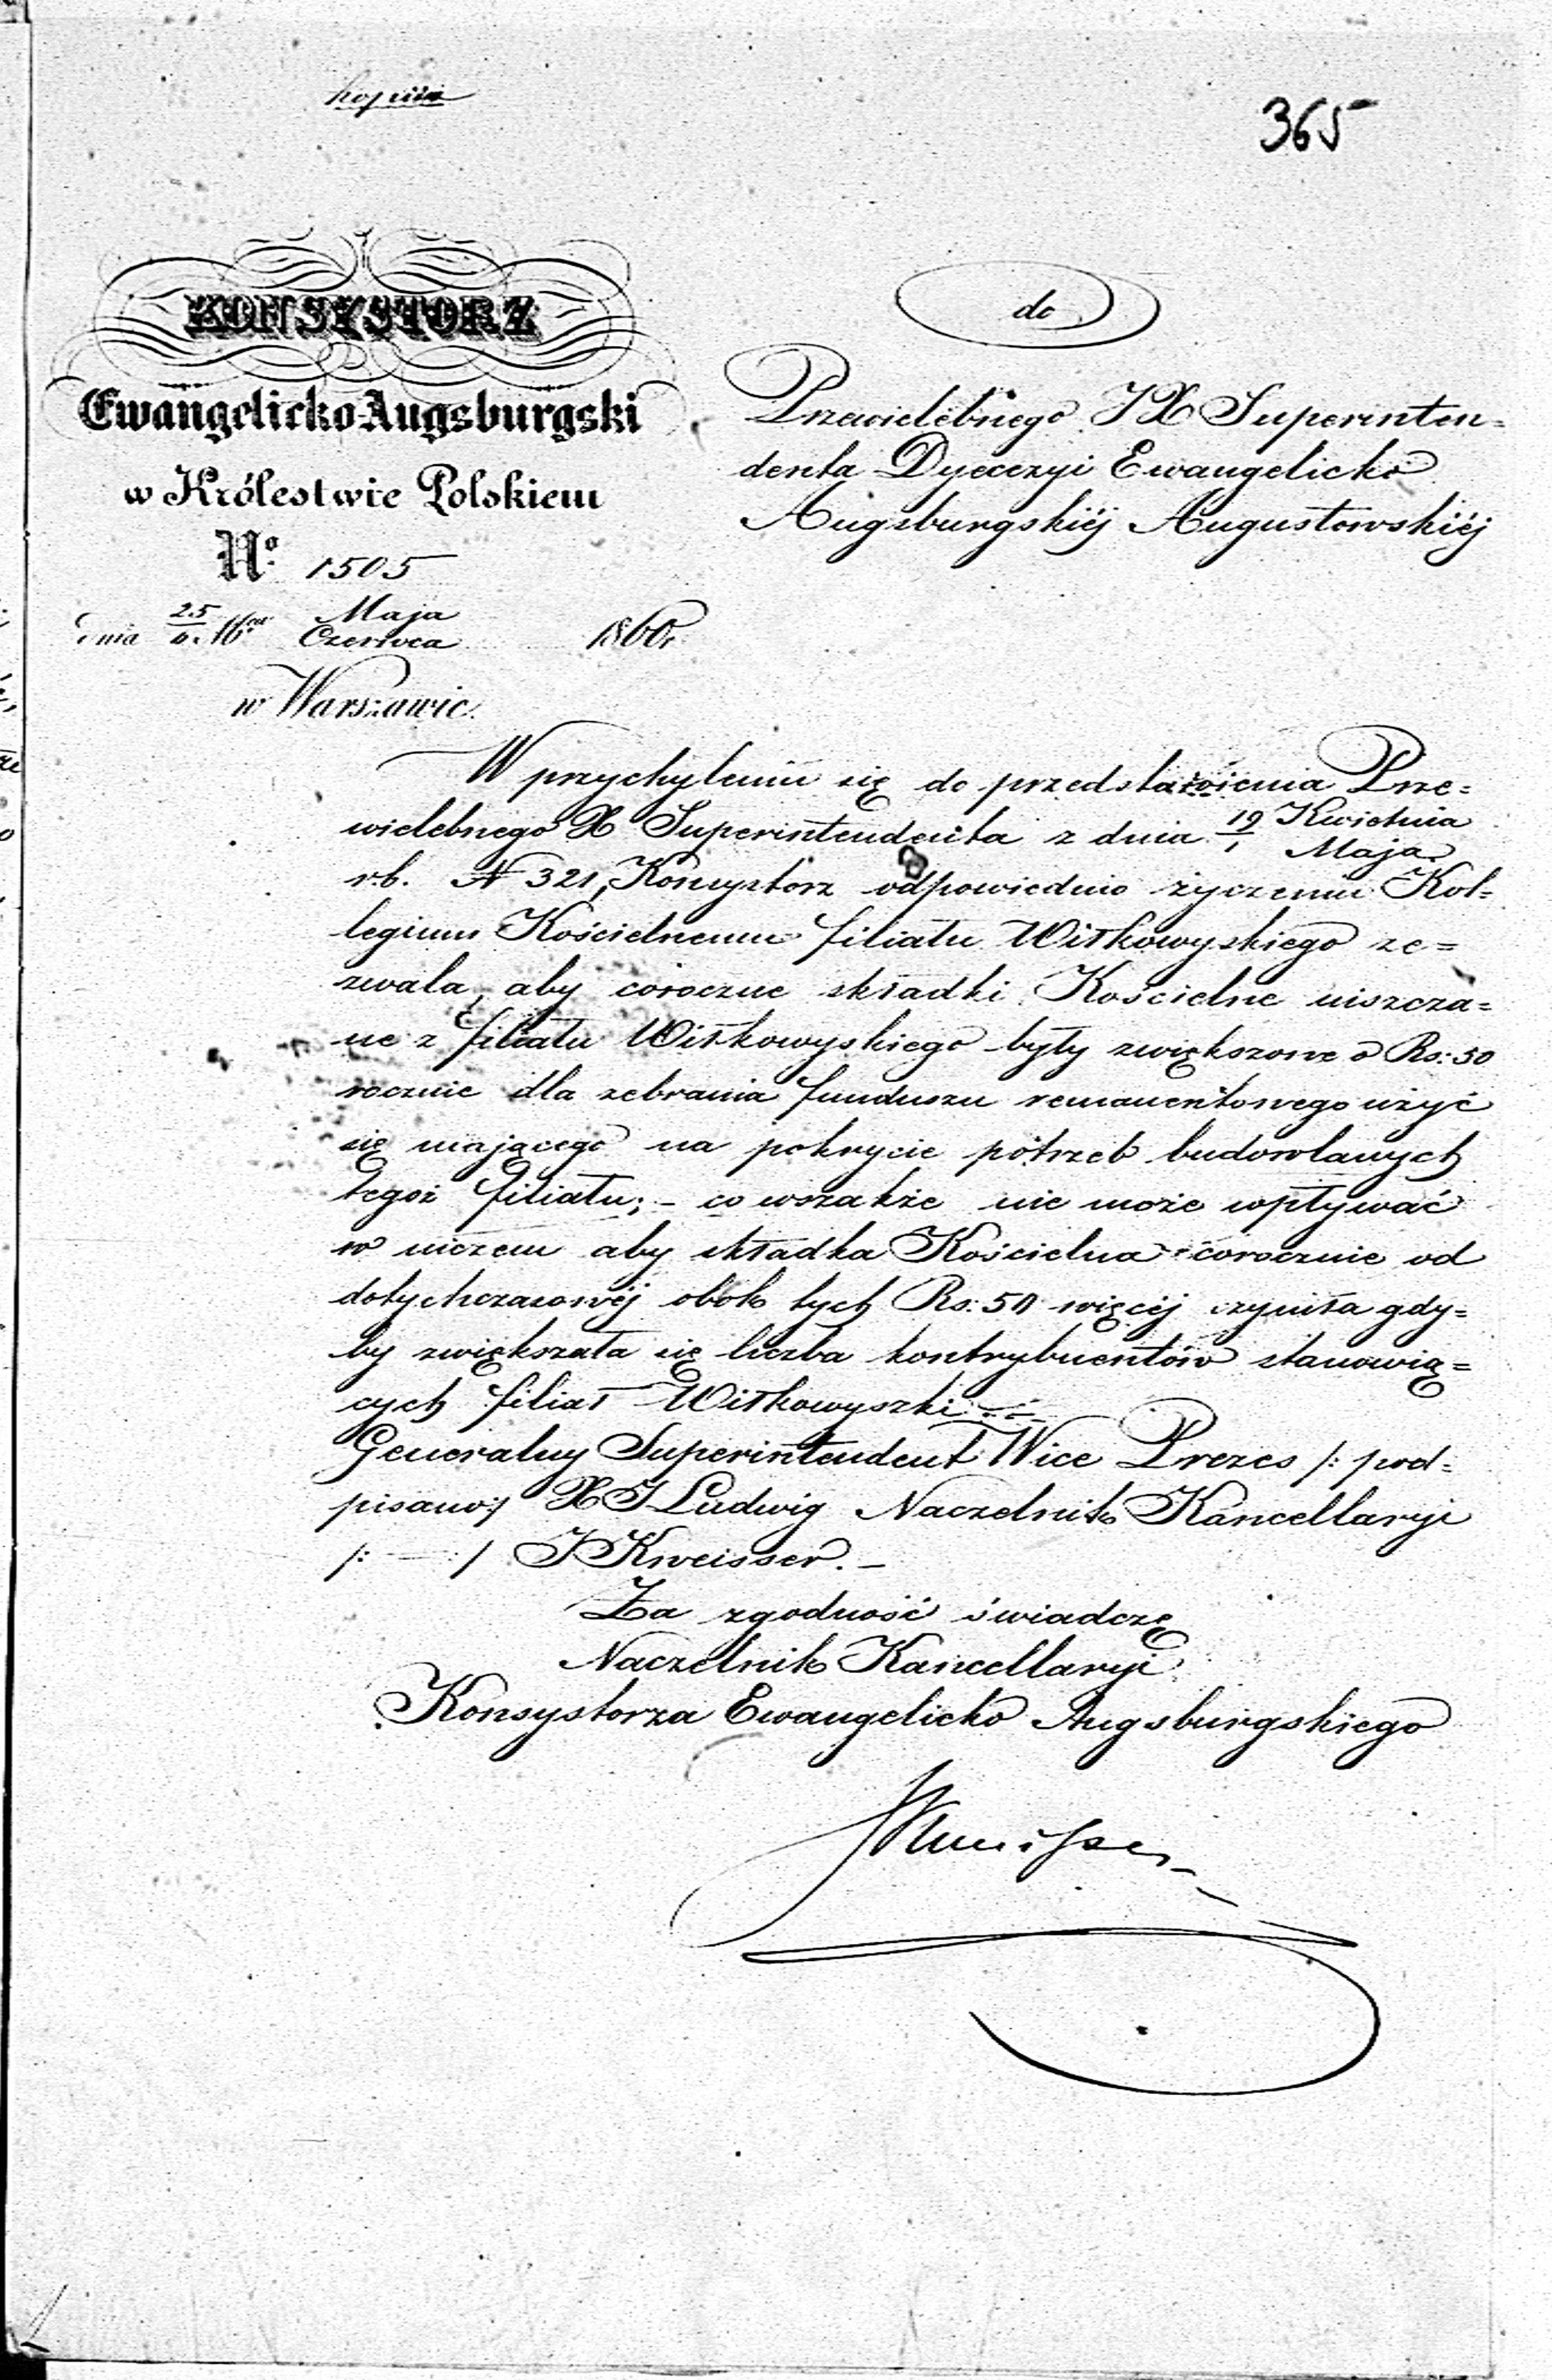 kopiia
365
KONSYSTORZ
Ewangelicko-Augsburgski
w Królestwie Polskiem
No. 1505
dnia 25/6 Maja/Czerwca 1860r
w Warszawie.
do
Przewielebnego JX Superinten=
denta Dyecezyi Ewangelicko
Augsburgskiéj Augustowskiéj
W przychyleniu się do przedstawienia Prze=
wielebnego X Superintendenta z dnia 19/1 Kwietnia/Maja
r.b. N 321, Konsystorz odpowiednio życzeniu Kol=
legium Kościelnemu filiału Wiłkowyskiego ze=
zwala, aby coroczne składki Kościelne uiszcza=
ne z filiału Wiłkowyskiego były zwiększone o Rs: 50
rocznie dla zebrania funduszu remanentowego użyć
się mającego na pokrycie potrzeb budowlanych
tegoż filiału; - co wszakże nie może wpływać
w niczem aby składka Kościelna corocznie od
dotychczasowéj obok tych Rs: 50 więcéj czyniła gdy=
by zwiększała się liczba kontrybuentów stanowią=
cych filiał Wiłkowyszki
Generalny Superintendent Wice Prezes /: pod=
pisano:/ X J Ludwig Naczelnik Kancellaryi
/: — :/ J Kweisser. -
Za zgodność świadczę
Naczelnik Kancellaryi
Konsystorza Ewangelicko Augsburgskiego